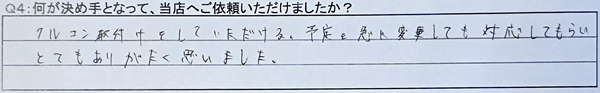 Q4:何が決め手となって、当店へご依頼いただけましたか?
クルコン取付けをしていただける。予定を急に変更しても対応してもらい
とてもありがたく思いました。